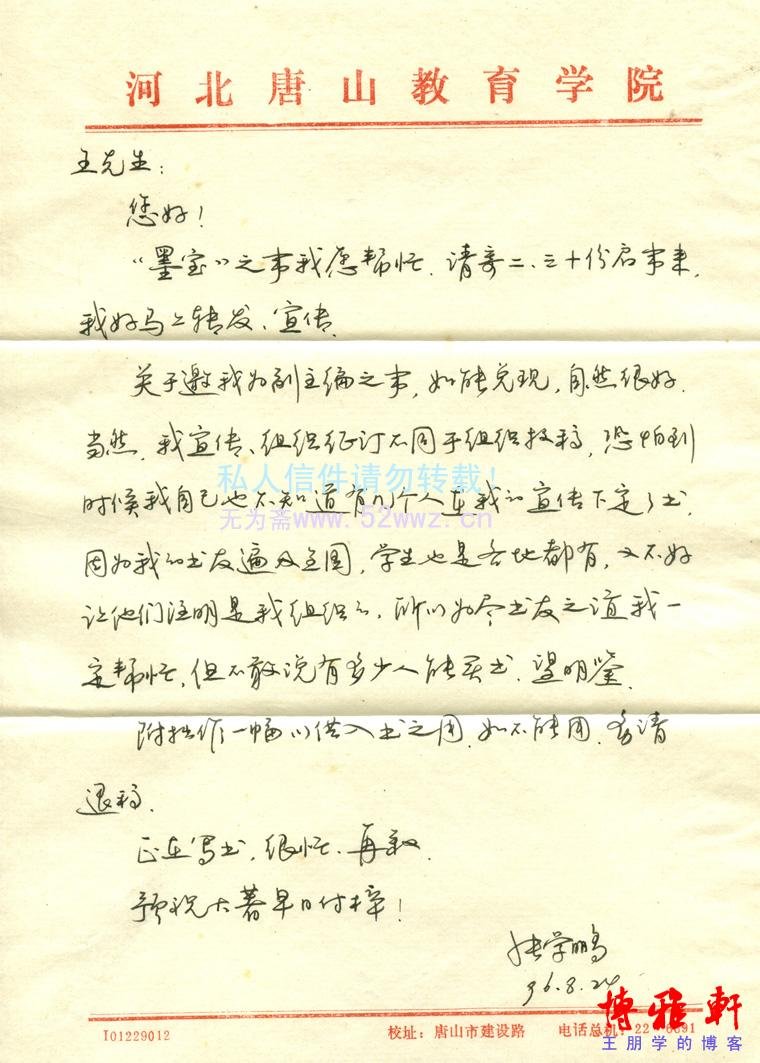 河北唐山教育学院
王先生：
您好！
“墨宝”之事我愿帮忙，请寄二、三十份启事来，
我好马上转发、宣传。
关于邀我为副主编之事，如能兑现，自然很好。
当然，我宣传、组织征订不同于组织投稿，恐怕到
私人信件请勿转载！
时候我自己也不知道有几个人在我的宣传下定了书，
无为斋www.52wwz.cn
因为我的书友遍及全国，学生也是各地都有，又不好
让他们注明是我组织的，所以为尽书友之道我一
定帮忙，但不敢说有多少人能买书，望明鉴。
附拙作一幅以供入书之用，如不能用，务请
退稿。
正在写书，很忙，再叙。
预祝大著早日付梓！
张学鹏
96.8.24
博雅轩
王朋学的博客
I01229012 校址：唐山市建设路 电话总机：22 6691